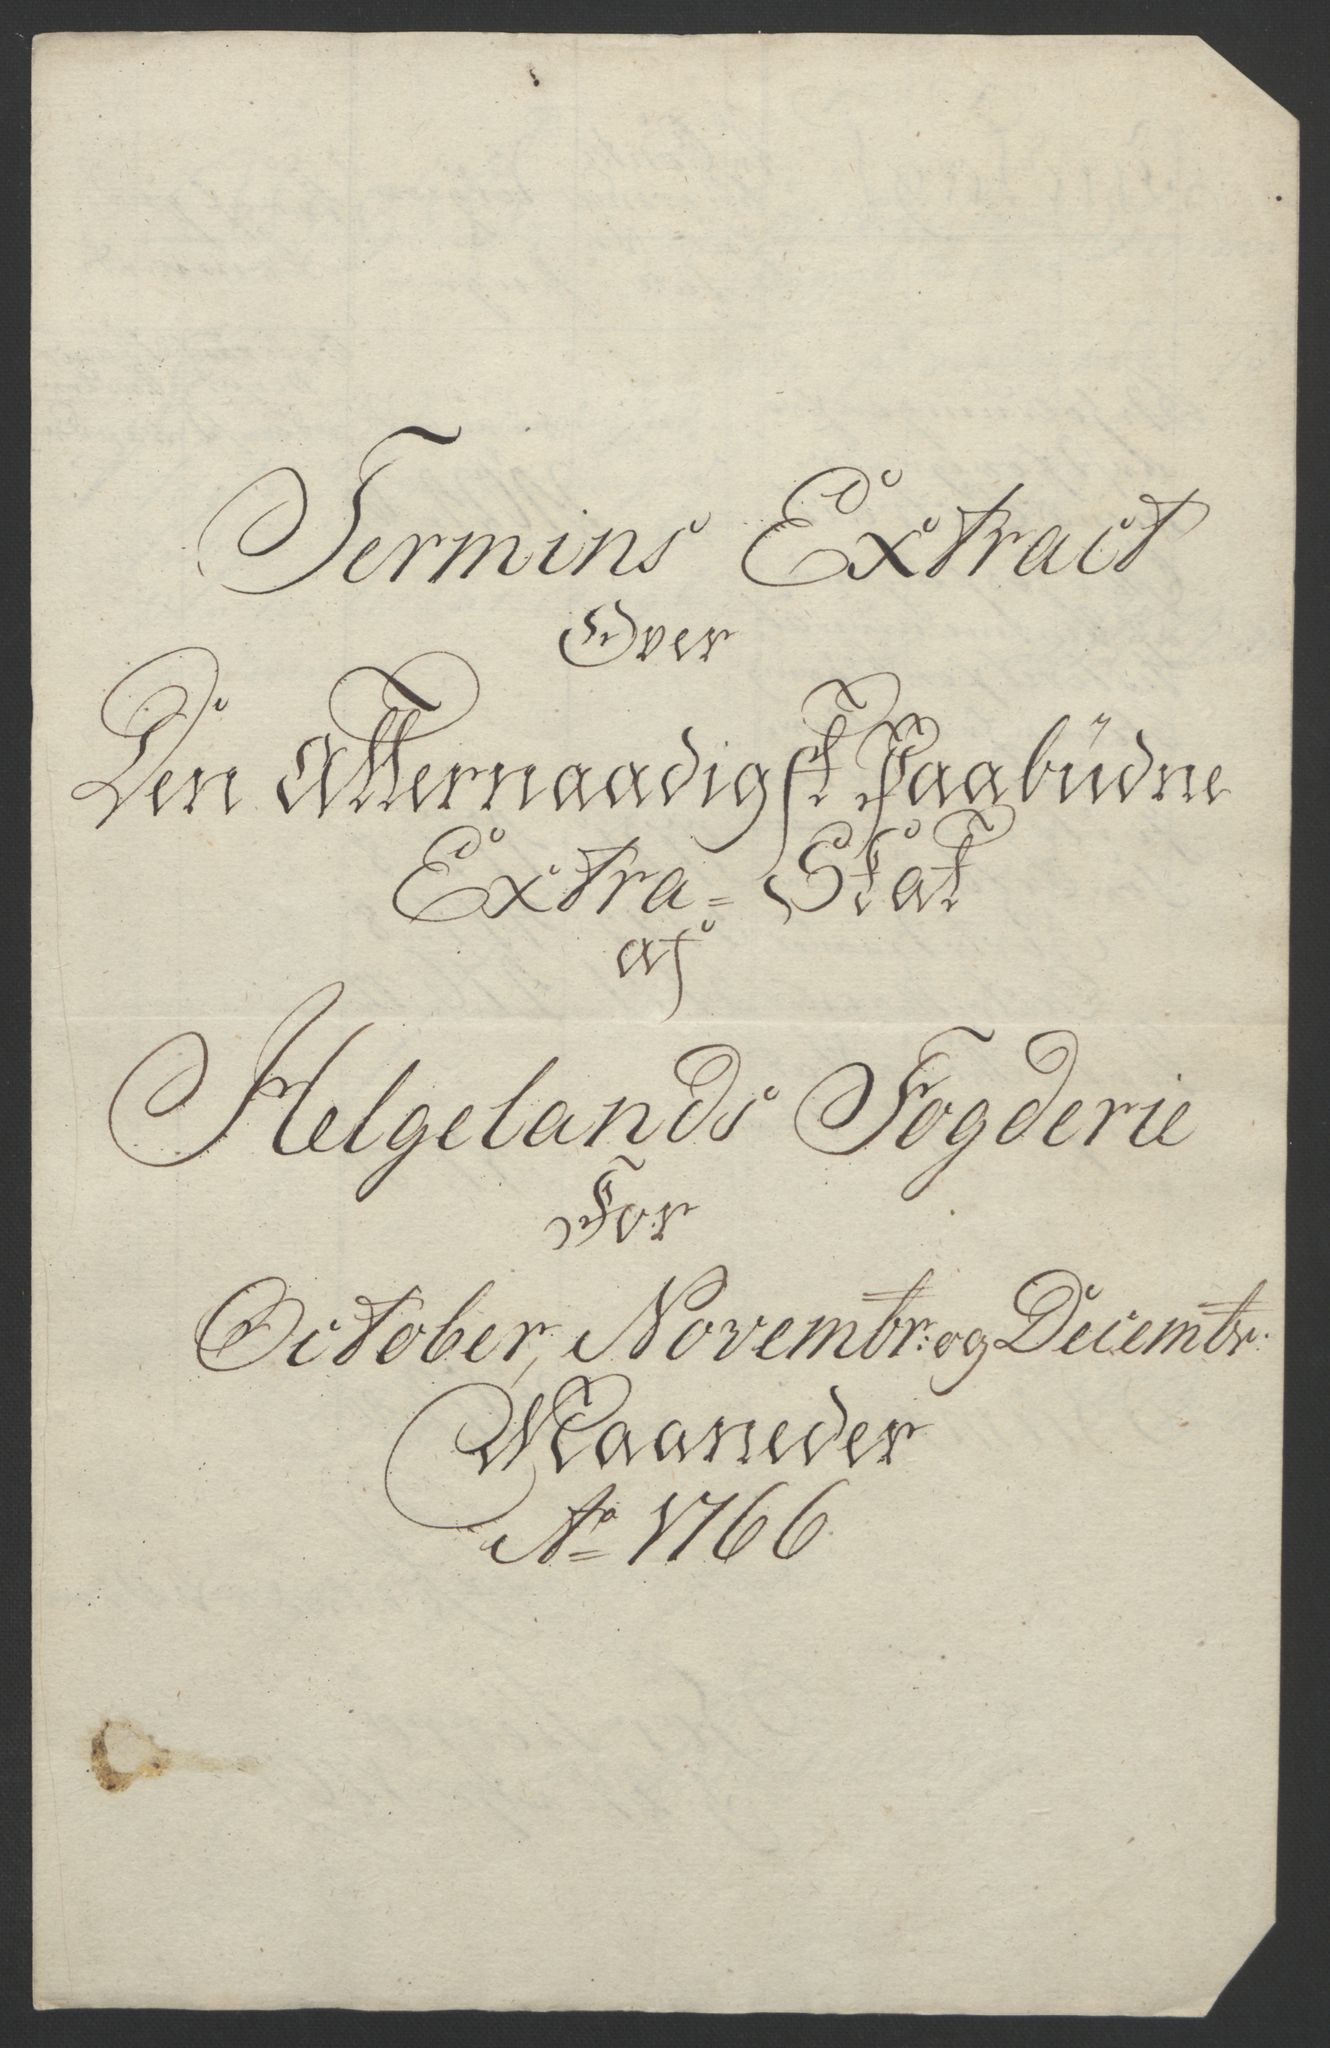 Termins Extract
Over
Den Allernaadigst Paabüdne
Extra-Skat
af
Helgelands Fogderie
For
October, Novembr: og Decembr.
Maaneder
Ao 1766